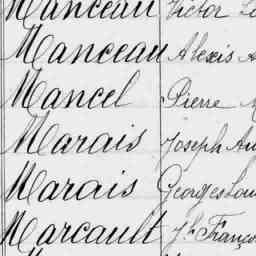 Manceau Victor
Manceau Alexis
Mancel Pierre
Marais Joseph
Marais Georges Louis
Marcault Jh Franço